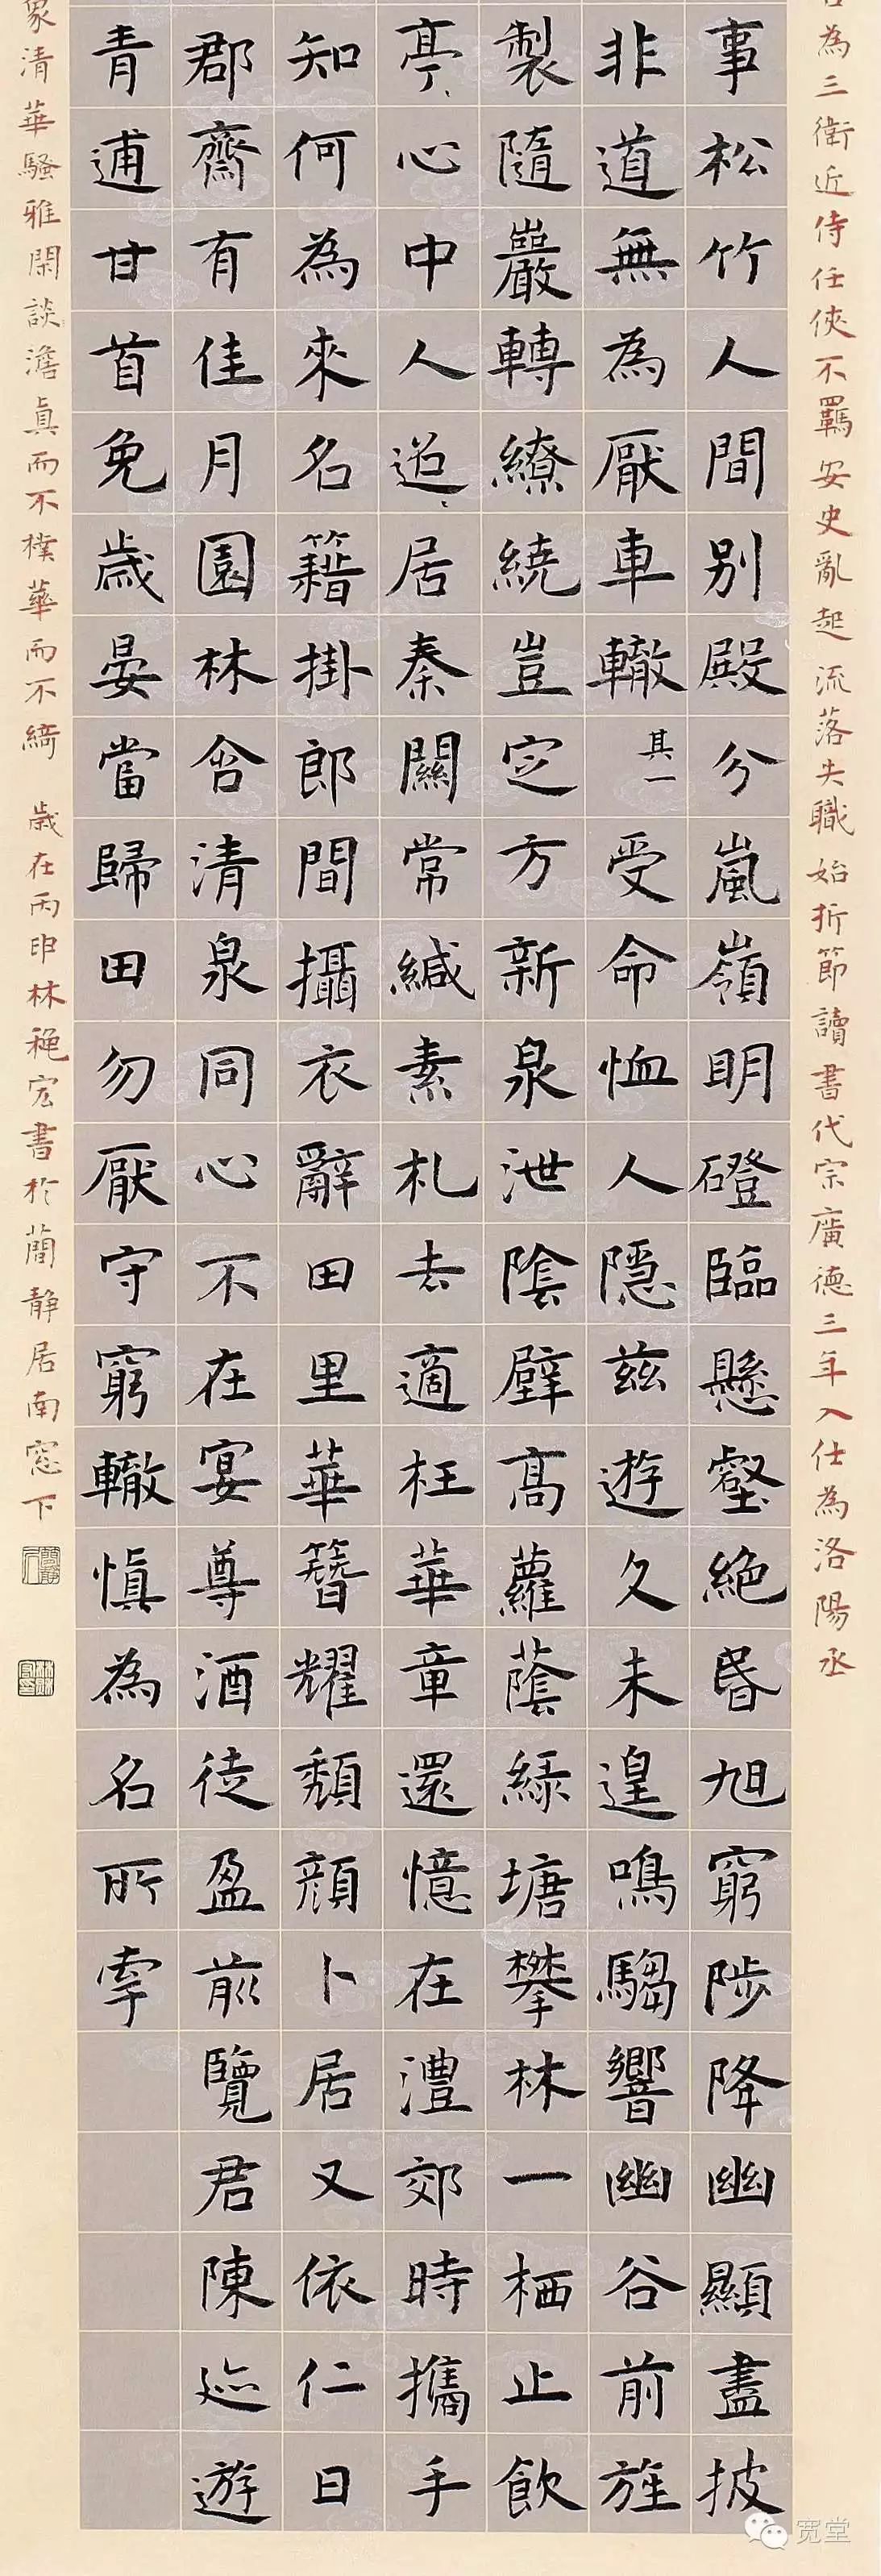 為三衛近侍任俠不羈安史亂起流落失職始折節讀書代宗廣德三年入仕為洛陽丞
事松竹人間別殿分嵐嶺明磴臨懸壑絶昏旭窮陟降幽顯盡披
非道無為厭車轍其一受命恤人隱茲遊久未遑鳴騶響幽谷前旌
製隨巖轉繚繞豈定方新泉泄陰壁高蘿蔭綠塘攀林一栖止飲
亭心中人迢居秦關常緘素札去適枉華章還憶在澧郊時攜手
知何為來名籍掛郎間攝衣辭田里華簪耀頹顏卜居又依仁日
郡齋有佳月園林含清泉同心不在宴尊酒徒盈前覽君陳迹遊
青逋甘首免歲晏當歸田勿厭守窮轍慎為名所牽
眾清華騷雅閑談澹真而不樸華而不綺 歲在丙申林穐宏書於蘭靜居南窓下
宽堂